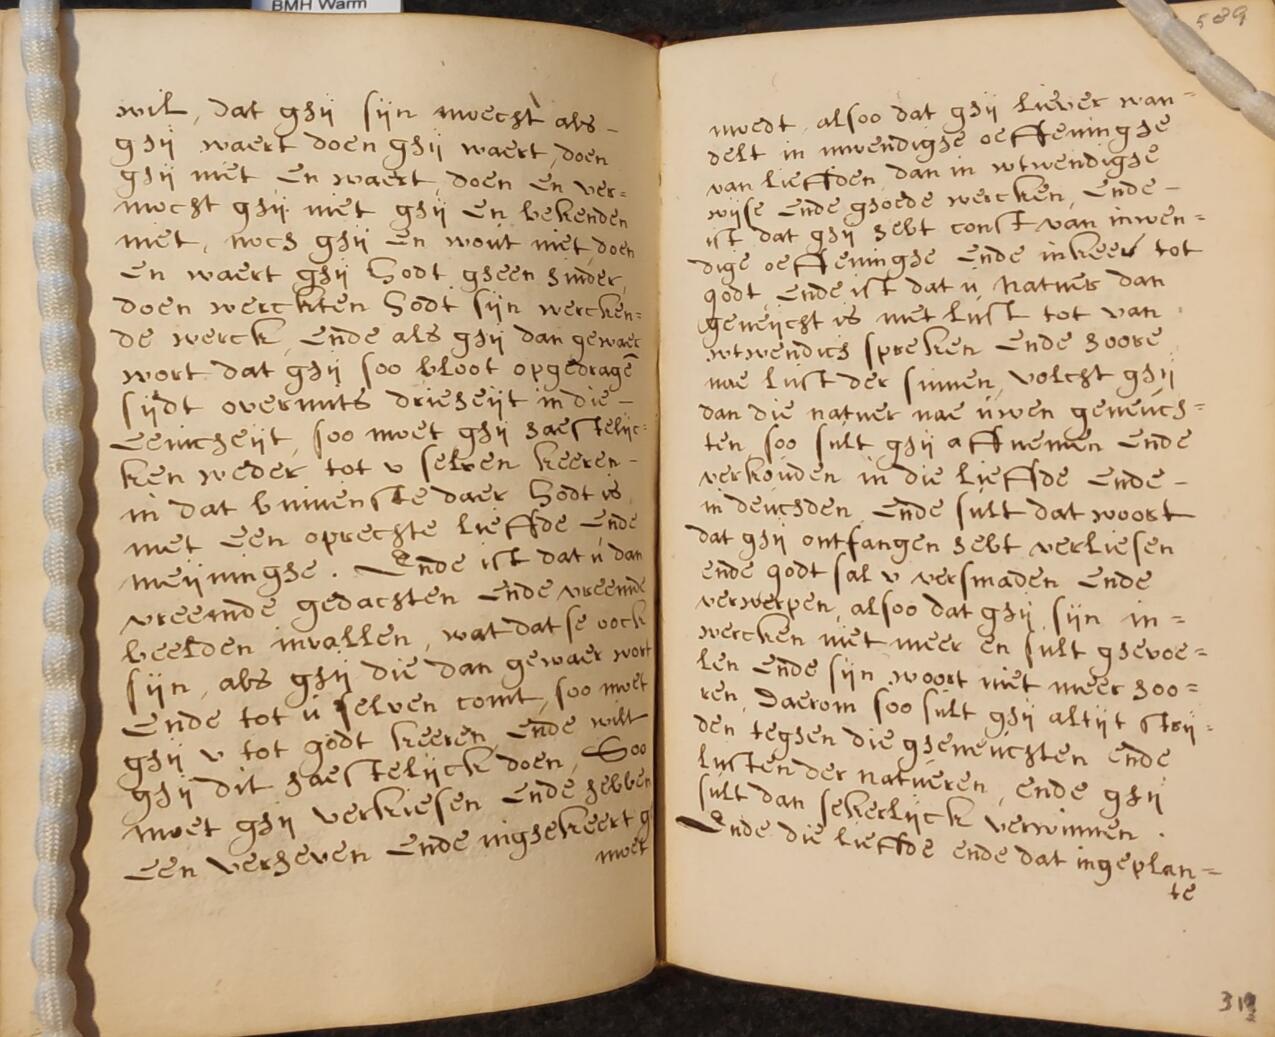 BMH Warm
wil, dat ghij sijn mocht als -
ghij waert doen ghij waert, doen
ghij niet en waert, doen en ver=
mocht ghij niet ghij en bekenden
niet, noch ghij en wout niet, doen
en waert ghij Godt gheen hinder,
doen werckten Godt sijn wercken=
de werck, ende als ghij dan gewaer
wort dat ghij soo bloot opgedragē
sijdt overmits drieheijt in die -
eenicheijt, soo moet ghij haestelijc=
ken weder tot v selven keeren -
in dat binnenste daer Godt is
met een oprechte lieffde ende
meijninghe. Ende ist dat ú dan
vreemde gedachten ende vreemde
beelden invallen, wat dat se oock
sijn, als ghij die dan gewaer wort
ende tot ú selven comt, soo moet
ghij v tot godt keeren, ende wilt
ghij dit haestelijck doen, Soo
moet ghij verkiesen ende hebben
een verheven ende inghekeert g
moet
589
moedt, alsoo dat ghij liever wan=
delt in inwendighe oeffeninghe
van lieffden, dan in wtwendighe
wijse ende ghoede wercken, ende -
ist dat ghij hebt const van inwen=
dige oeffeninghe ende inkeer tot
godt, ende ist dat ú natuer dan
geneijcht is met lúst tot van
wtwendich spreken ende hoore
nae lúst der sinnen, volcht ghij
dan die natuer nae úwen geneúch=
ten, soo súlt ghij affnemen ende
verkoúden in die lieffde ende -
in deúchden, ende súlt dat woort
dat ghij ontfangen hebt verliesen
ende godt sal v versmaden ende
verwerpen, alsoo dat ghij sijn in=
wercken niet meer en súlt ghevoe=
len ende sijn woort niet meer hoo=
ren, daerom soo súlt ghij altijt strij=
den teghen die gheneúchten ende
lústen der natueren, ende ghij
súlt dan sekerlijck verwinnen.
Ende die lieffde ende dat ingeplan=
te